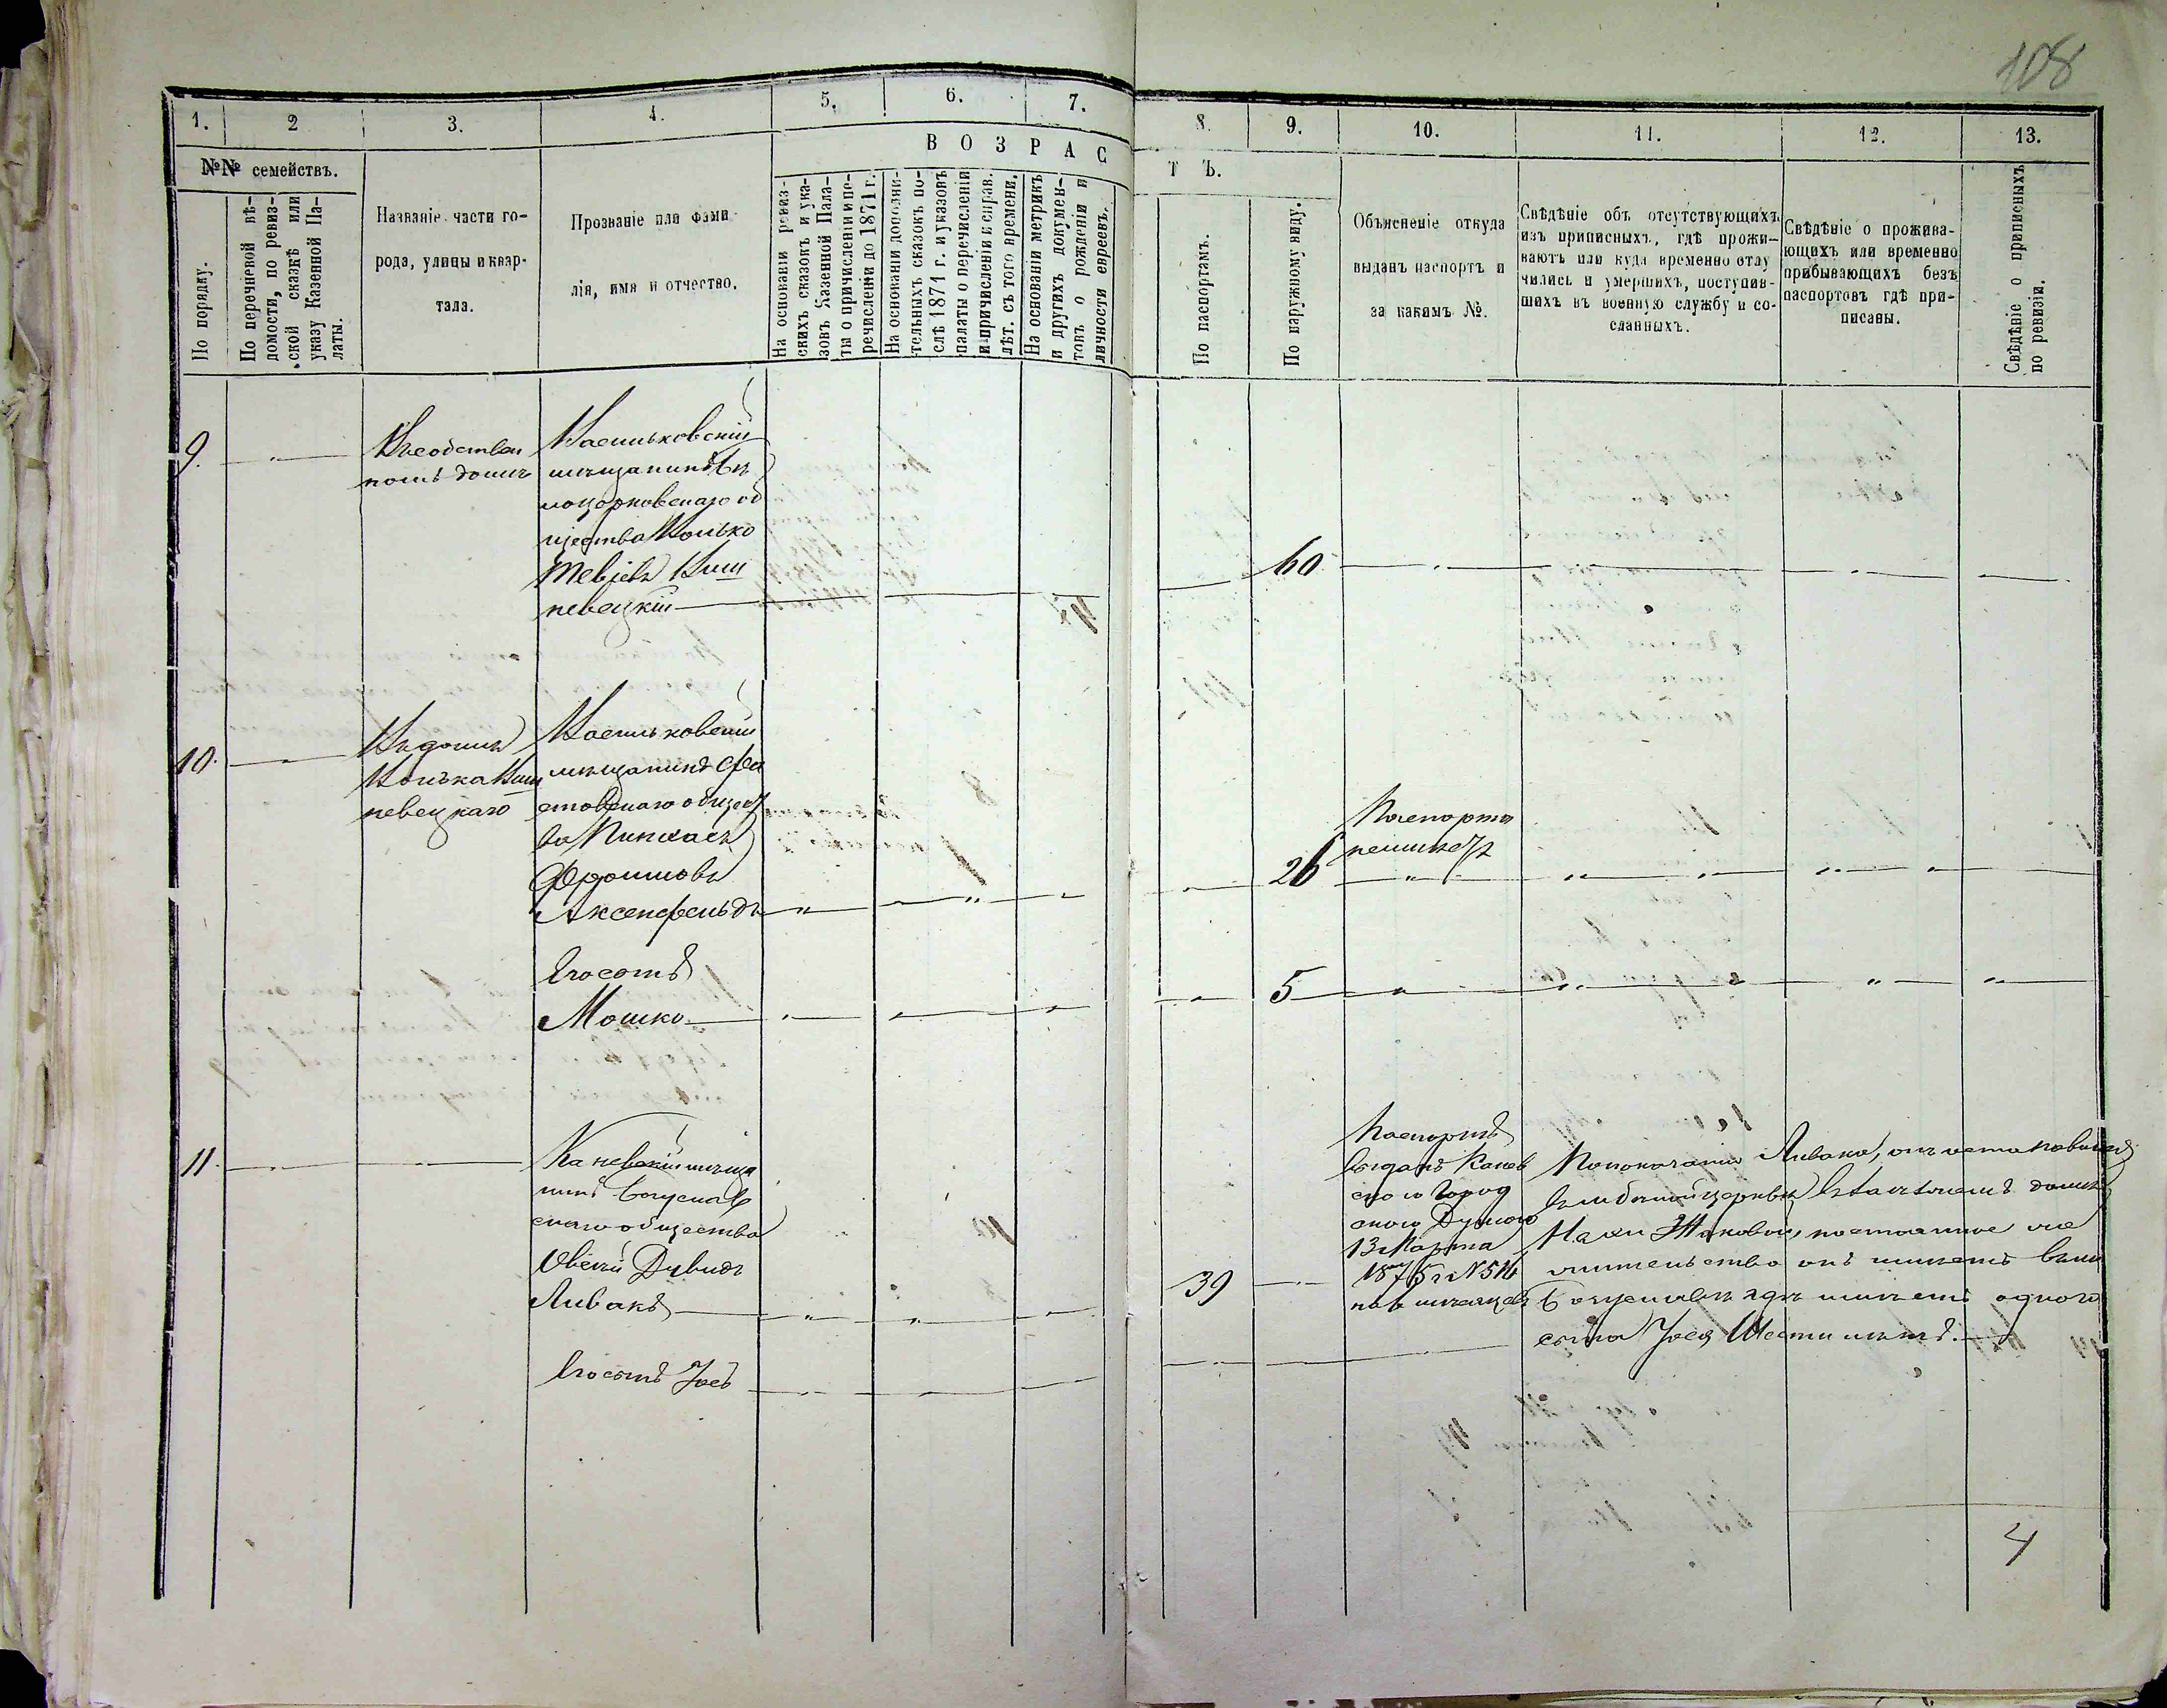 108
1.
2
3.
4.
5.
6.
7.
8.
9.
10.
11.
12.
13.
В О З Р А С
Т Ъ.
№№ семействъ.
По порядку.
По перечневой вѣ-
домости, по ревиз-
ской сказкѣ или
указу Казенной Па-
латы.
Названіе части го-
рода, улицы и квар-
тала.
Прозваніе или фами-
лія, имя и отчество.
На основаніи ревиз-
скихъ сказокъ и ука-
зовъ Казенной Пала-
ты о причисленіи и пе-
речисленіи до 1871 г.
На основаніи дополни-
тельныхъ сказокъ по-
слѣ 1871 г. и указовъ
палаты о перечисленіи
и причисленіи и справ.
лѣт. съ того времени.
На основаніи метрикъ
и другихъ докумен-
товъ о рожденіи и
личности евреевъ.
По паспортамъ.
По наружному виду.
Объясненіе откуда
выданъ паспортъ и
за какимъ №.
Свѣдѣніе объ отсутствующихъ
изъ приписныхъ, гдѣ прожи-
ваютъ или куда временно отлу
чились и умершихъ, поступив-
шихъ въ военную службу и со-
сланныхъ.
Свѣдѣніе о прожива-
ющихъ или временно
прибывающихъ безъ
паспортовъ гдѣ при-
писаны.
Свѣдѣніе о приписныхъ
по ревизіи.
9.
Въ собствен
номъ домѣ
Васильковскій
мѣщанинъ Бѣ
лоцерковскаго об
щества Волько
Тевіевъ Виш
невецкій
60
10.
Въ домѣ
Волька Виш
невецкаго
Васильковскій
мѣщанинъ Фа
стовскаго общест
ва Пинхасъ
Фроимовъ
Аксенфельдъ
26
Паспорта
неимѣетъ
Его сынъ
Мошко
5
11.
Каневскій мѣща
нинъ Богуслав
скаго общества
Овсѣй Дувидъ
Ливакъ
39
Паспортъ
выданъ Канев
скою Город
скою Думою
13 Марта
1875 г. N 516
на 6 мѣсяцевъ
По показанію Ливака, онъ остановился
въ мѣ Бѣлой церквѣ въ домѣ
постоянное жи
тельство онъ имѣетъ въ м
Богуславѣ гдѣ имѣетъ одного
сына Іося, Шести лѣтъ.
Его сынъ Іось
4